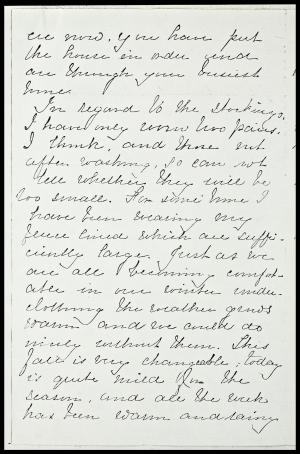 are now. You have put
the house in order and
are through your busiest
time.
In regard to the stockings,
I have only worn two pairs,
I think, and those not
after washing, so can not
tell whether they will be
too small. For some time I
have been wearing my
fleece lined which are suffi-
ciently large. Just as we
are all becoming comfort-
able in our winter under-
clothing the weather grows
warm and we could do
nicely without them. This
fall is very changeable; today
is quite mild for the
season, and all the week
has been warm and rainy